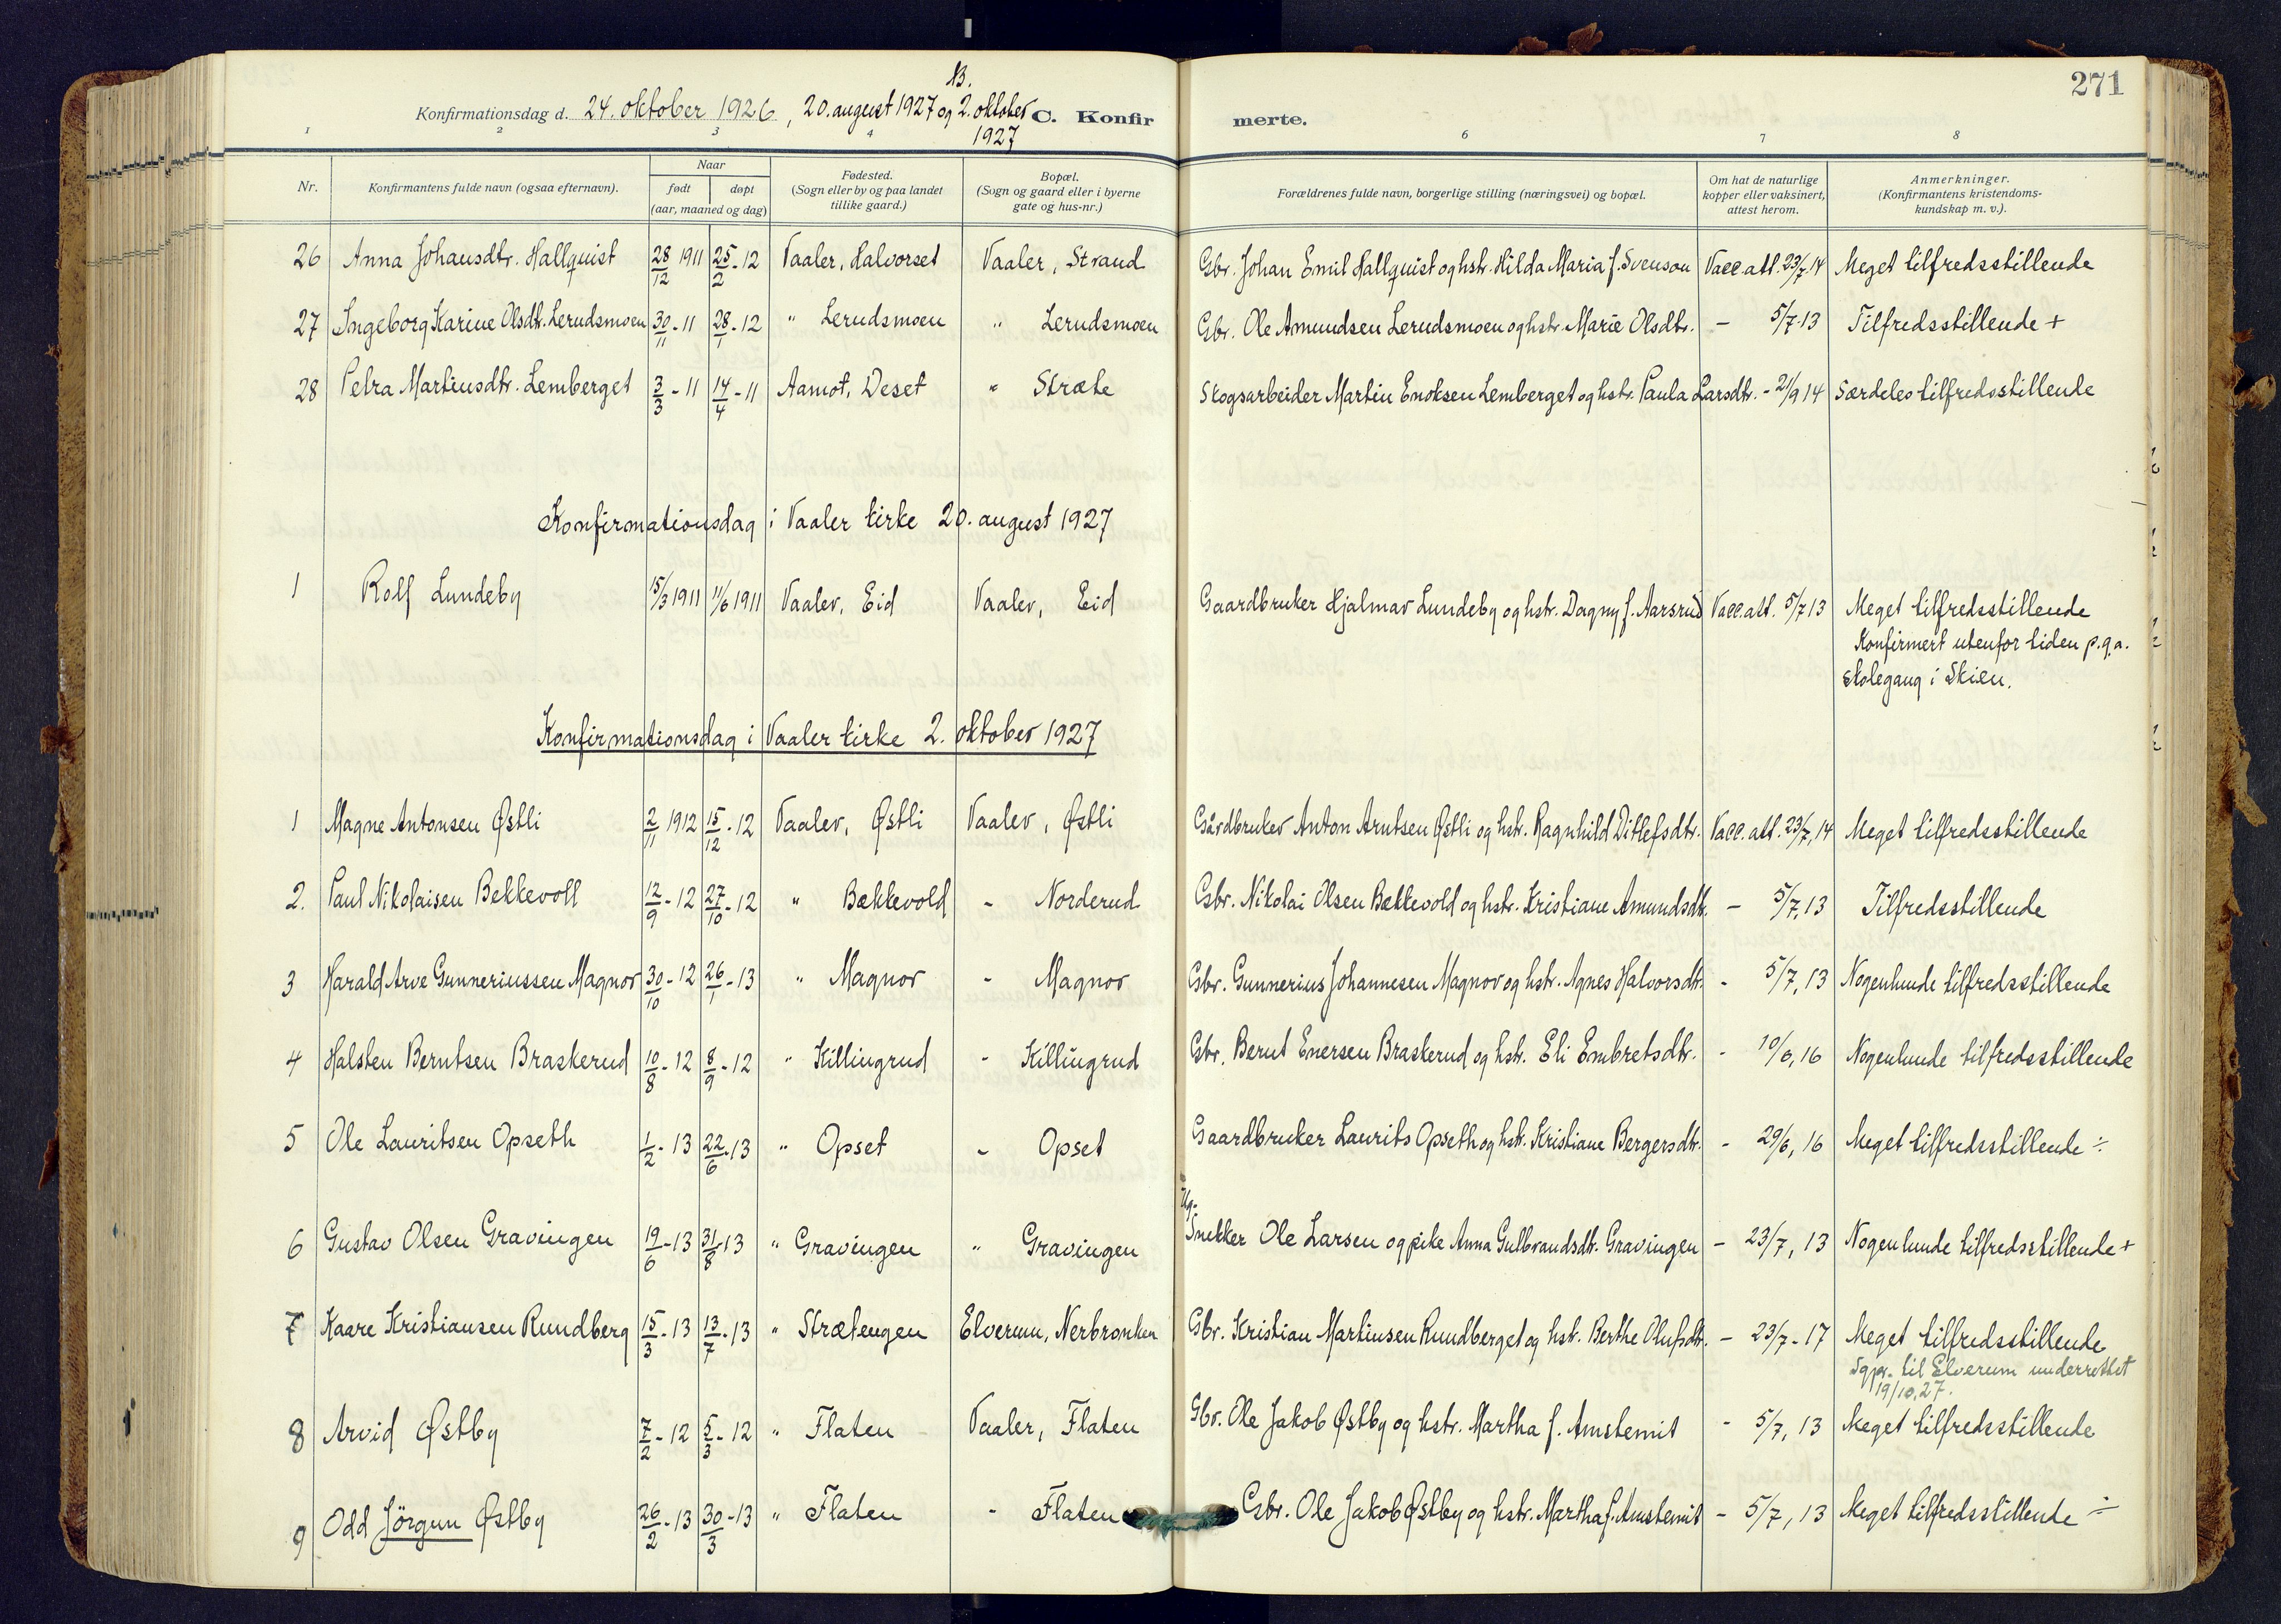 271
B.
Konfirmationsdag d. 24. oktober 1926, 20. august 1927 og 2. oktober 1927 C. Konfirmerte.
1 2 3 4 6 7 8
Nr. Konfirmantens fulde navn (ogsaa efternavn). Naar født døpt (aar, maaned og dag) Fødested. (Sogn eller by og paa landet tillike gaard.) Bopæl. (Sogn og gaard eller i byerne gate og hus-nr.) Forældrenes fulde navn, borgerlige stilling (næringsvei) og bopæl. Om hat de naturlige kopper eller vaksinert, attest herom. Anmerkninger. (Konfirmantens kristendomskundskap m. v.).
26 Anna Johansdtr. Hallquist 28/12 1911 25/2-12 Vaaler, Halvorset Vaaler, Strand Gbr. Johan Emil Hallquist og hstr. Hilda Maria f. Svenson Vacc.att. 23/7.14 Meget tilfredsstillende
27 Ingeborg Karine Olsdtr. Lerudsmoen 30/11-11 28/1-12 " Lerudsmoen " Lerudsmoen Gbr. Ole Amundsen Lerudsmoen og hstr. Marie Olsdtr. - 5/7-13 Tilfredsstillende +
28 Petra Martinsdtr. Lemberget 3/3-11 14/4-11 Aamot, Deset " Stræte Skogsarbeider Martin Enoksen Lemberget og hstr. Paula Larsdtr. - 21/9 14 Særdeles tilfredsstillende
Konfirmationsdag i Vaaler kirke 20. august 1927
1 Rolf Lundeby 15/3 1911 11/6 1911 Vaaler, Eid Vaaler, Eid Gaardbruker Hjalmar Lundeby og hstr. Dagny f. Aarsrud Vacc.att. 5/7 13 Meget tilfredsstillende
Konfirmert utenfor tiden p.g.a.
skolegang i Skien.
Konfirmationsdag i Vaaler kirke 2. oktober 1927
1 Magne Antonsen Østli 2/11 1912 15/12-12 Vaaler, Østli Vaaler, Østli Gårdbruker Anton Arntsen Østli og hstr. Ragnhild Ditlefsdtr. Vacc.att. 23/7, 14 Meget tilfredsstillende
2. Paul Nikolaisen Bekkevoll 12/9-12 27/10-12 " Bækkevold - Norderud Gbr. Nikolai Olsen Bækkevold og hstr. Kristiane Amundsdtr. - 5/7, 13 Tilfredsstillende
3 Harald Arve Gunneriussen Magnor 30/10-12 26/1-13 " Magnor - Magnor Gbr. Gunnerius Johannesen Magnor og hstr. Agnes Halvorsdtr. - 5/7, 13 Nogenlunde tilfredsstillende
4 Halsten Berntsen Braskerud 10/8-12 8/9-12 " Killingrud - Killingrud Gbr. Bernt Enersen Braskerud og hstr. Eli Embretsdtr. - 10/6, 16 Nogenlunde tilfredsstillende
5 Ole Lauritsen Opseth 1/2-13 22/6-13 " Opset - Opset Gaardbruker Laurits Opseth og hstr. Kristiane Bergersdtr. - 29/6, 16 Meget tilfredsstillende ÷
Ug.
6 Gustav Olsen Gravingen 19/6-13 31/8-13 " Gravingen " Gravingen Snekker Ole Larsen og pike Anna Gulbrandsdtr. Gravingen - 23/7, 13 Nogenlunde tilfredsstillende +
7 Kaare Kristiansen Rundberg 15/3-13 13/7-13 " Strætengen Elverum, Nerbronken Gbr. Kristian Martinsen Rundberget og hstr. Berthe Olufsdtr. - 23/7-17 Meget tilfredsstillende
Sgpr. til Elverum underrettet
19/10.27.
8 Arvid Østby 7/2-12 5/3-12 " Flaten Vaaler, Flaten Gbr. Ole Jakob Østby og hstr. Martha f. Amstemit - 5/7, 13 Meget tilfredsstillende
9 Odd Jörgun Østby 26/2-13 30/3-13 " Flaten - Flaten Gbr. Ole Jakob Østby og hstr. Martha f. Amstemit - 5/7, 13 Meget tilfredsstillende ÷